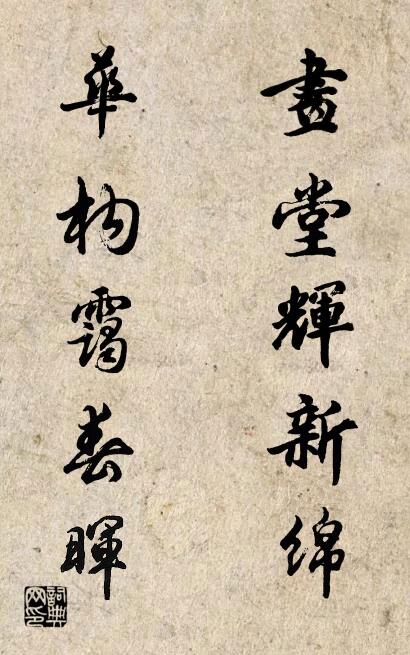 畫堂輝新綿
華构靄春暉
詞典
网印